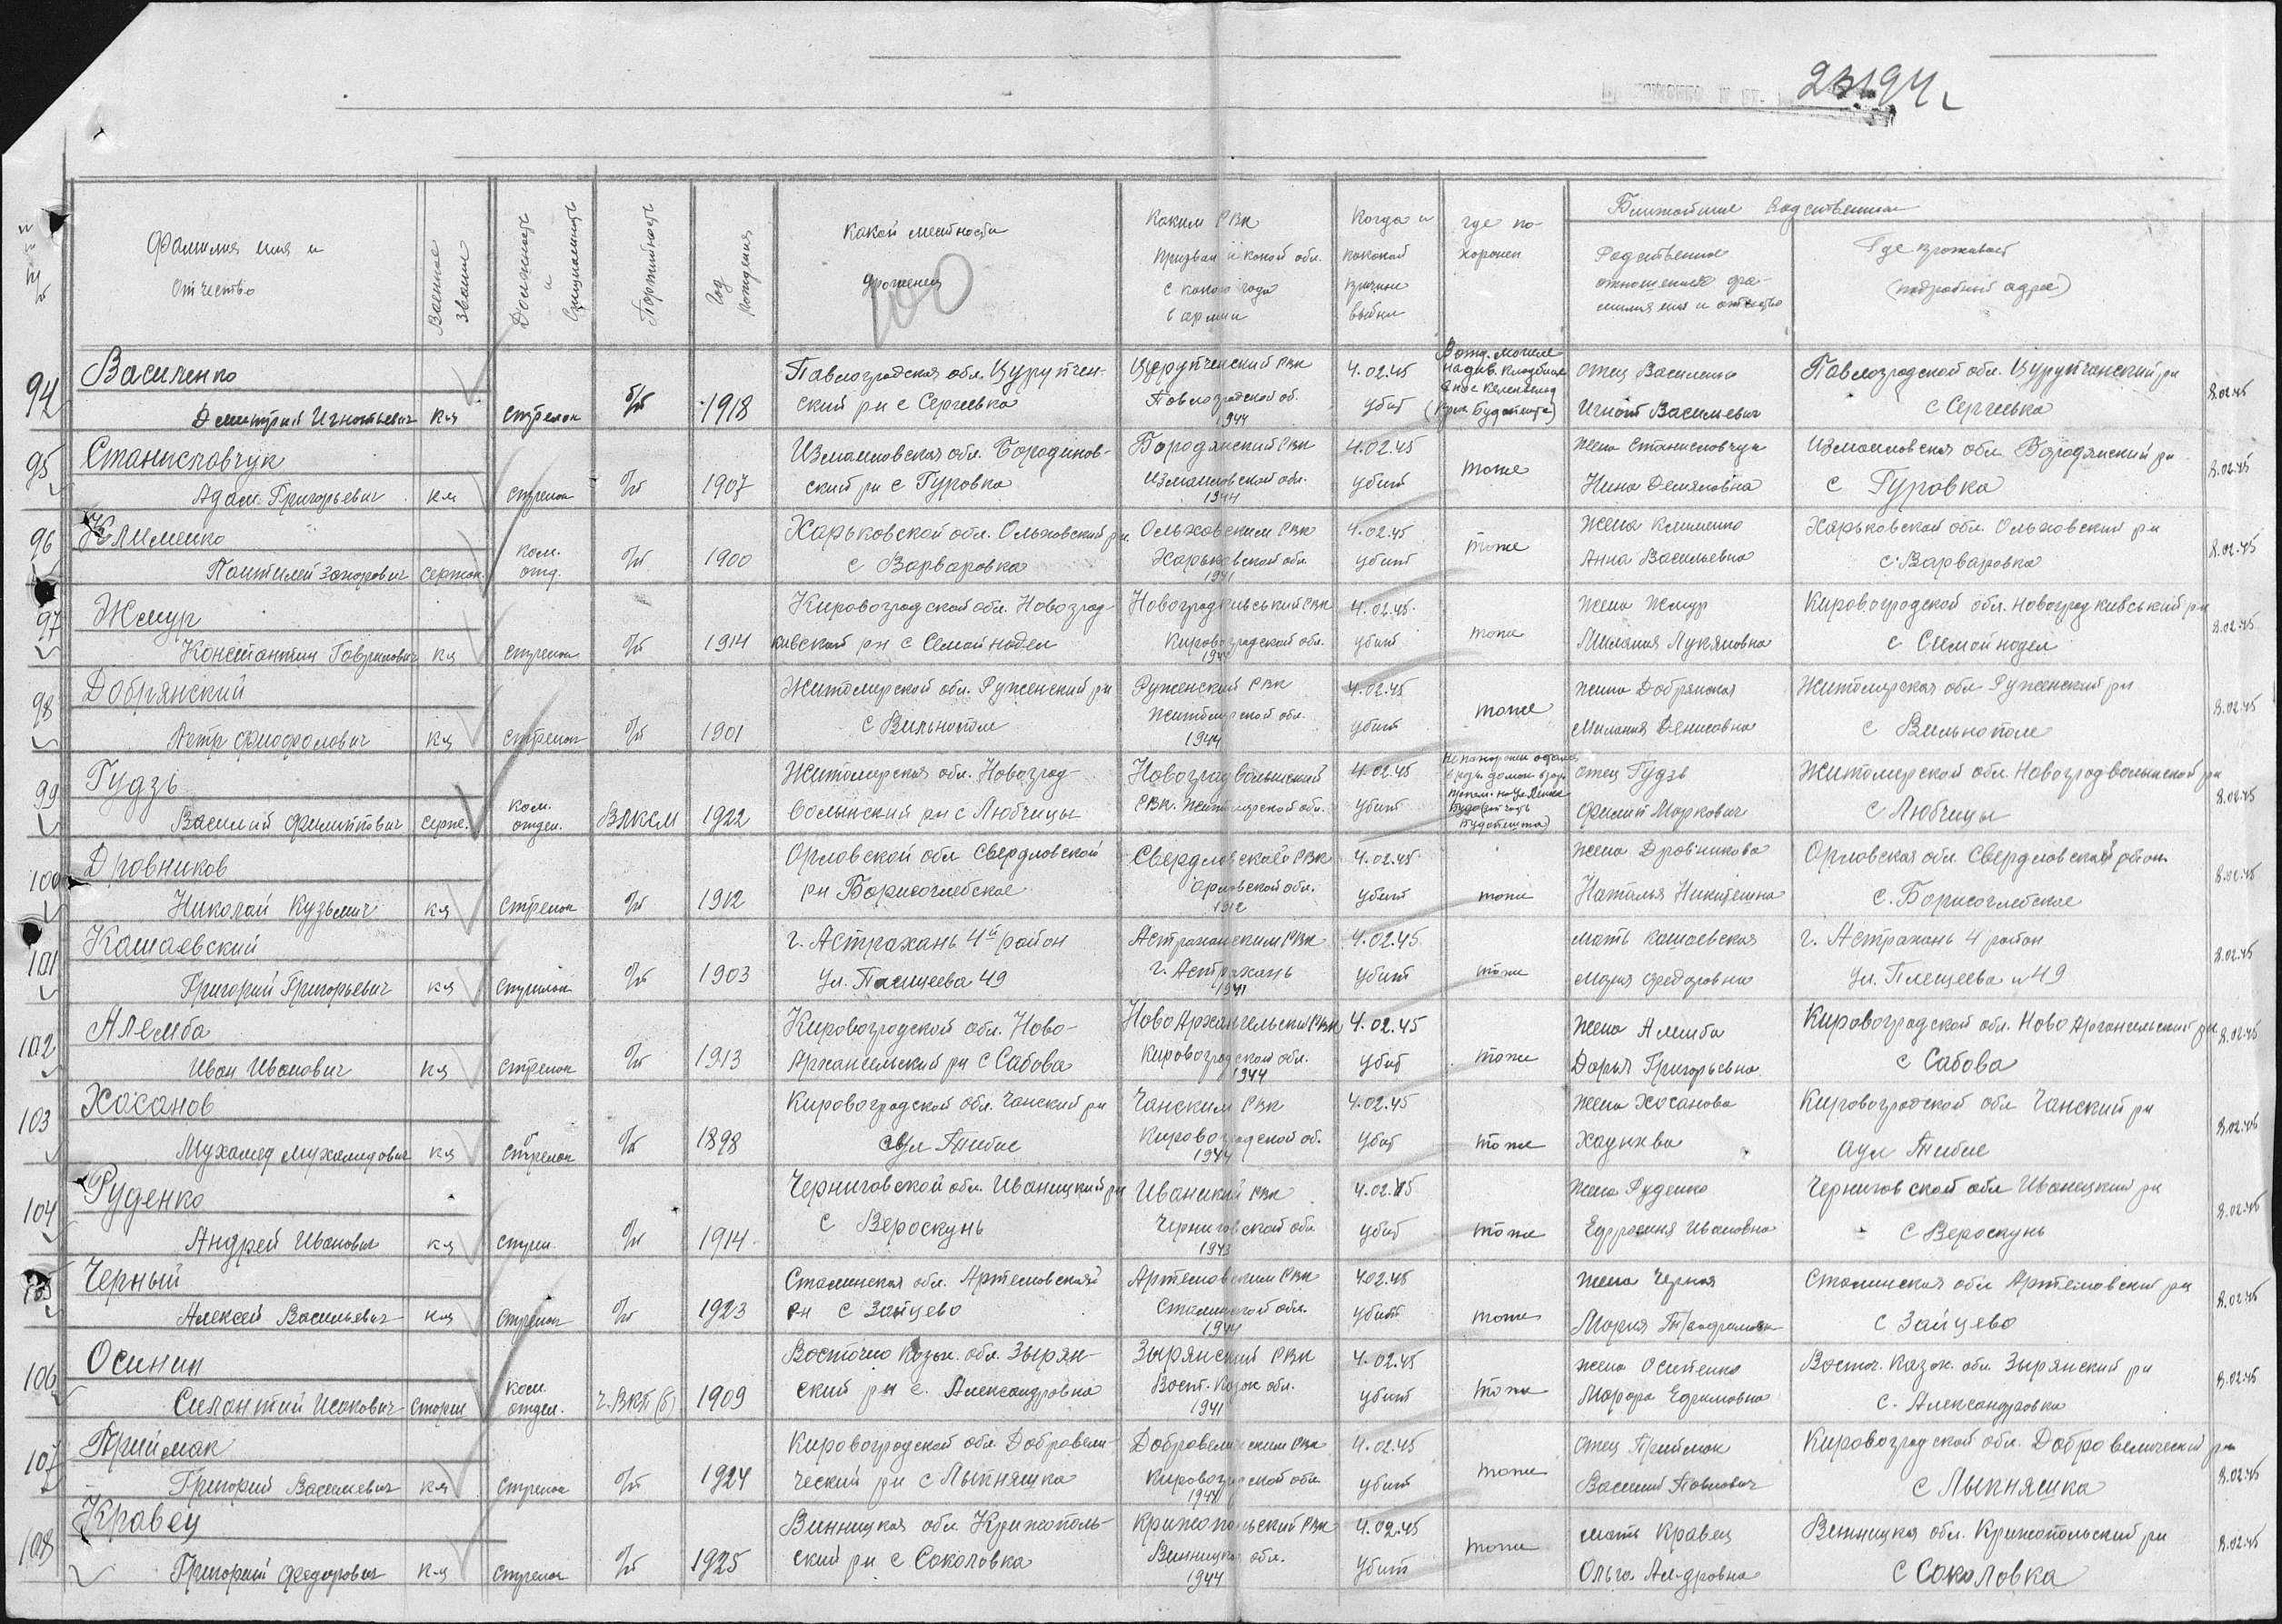 23194
Фамилия имя и
отчество
Военное
звание
Должность
и
специальность
Партийность
Год
рождения
Какой местности
уроженец
100
Каким РВК
призван и какой обл.
с какого года
в армии
Когда и
по какой
причине
выбыл
где по-
хоронен
Ближайшие родственники
Родственные
отношения фа-
милия имя и отчество
Где проживает
(подробный адрес)
94
Василенко
Дмитрий Игнатьевич
к-ц
стрелок
б/п
1918
Павлоградская обл. Цурупчен-
ский рн с Сергеевка
Цурупченский РВК
Павлоградской об.
1944
4.02.45
убит
В отд. могиле
отец Василенко
Игнат Васильевич
Павлоградской обл. Цурупчанский рн
с Сергеевка
8.02.45
95
Станиславчук
Адам Григорьевич
к-ц
стрелок
б/п
1907
Измаиловская обл. Бородинов-
ский рн с Гуровка
Бородянский РВК
Измаиловской обл.
1944
4.02.45
убит
тоже
жена Станиславчук
Нина Демяновна
Измаиловская обл Бородянский рн
с Гуровка
8.02.45
96
Клименко
Пантилей Захарович
сержан
ком.
отд.
б/п
1900
Харьковской обл. Ольховский рн
с Варваровка
Ольховским РВК
Харьковской обл.
1941
4.02.45
убит
тоже
жена Клименко
Анна Васильевна
Харьковской обл. Ольховский рн
с. Варваровка
8.02.45
97
Жмур
Константин Гаврилович
к-ц
стрелок
б/п
1914
Кировоградской обл. Новоград-
кивской рн с Семойнадел
Новоградкивський РВК
Кировоградской обл.
1944
4.02.45
убит
тоже
жена Жмур
Милания Лукяновна
Кировоградской обл. Новоградкивський рн
с Симойнадел
8.02.45
98
Добрянский
Петр Фиофолович
к-ц
стрелок
б/п
1901
Житомирской обл. Руженский рн
с Вильнополе
Руженский РВК
Житомирской обл.
1944
4.02.45
убит
тоже
жена Добрянская
Милания Денисовна
Житомирская обл Руженский рн
с Вильнополе
8.02.45
99
Гудзь
Василий Филиппович
серж.
ком.
отдел.
ВЛКСМ
1922
Житомирская обл. Новоград-
волынский рн с Любчицы
Новоградволынский
РВК. Житомирской обл.
4.02.45
убит
Будапешта)
отец Гудзь
Филип Маркович
Житомирской обл. Новоградволынской рн
с Любчицы
8.02.45
100
Дровников
Николай Кузьмич
к-ц
стрелок
б/п
1912
Орловской обл Свердловской
рн Борисоглебское
Свердловской РВК
Орловской обл.
1912
4.02.45
убит
тоже
жена Дровникова
Наталья Никитешна
Орловская обл. Свердловский район
с. Борисоглебское
8.02.45
101
Кашаевский
Григорий Григорьевич
к-ц
стрелок
б/п
1903
г. Астрахань 4й район
ул. Плещеева 49
Астраханским РВК
г. Астрахань
1941
4.02.45
убит
тоже
мать Кашаевская
Мария Федоровна
г. Астрахань 4 район
ул. Плещеева н 49
8.02.45
102
Алемба
Иван Иванович
к-ц
стрелок
б/п
1913
Кировоградской обл. Ново-
Архангельский рн с Сабова
НовоАрхангельский РВК
Кировоградской обл.
1944
4.02.45
убит
тоже
жена Алемба
Дарья Григорьевна
Кировоградской обл. НовоАрхангельский рн
с Сабова
8.02.45
103
Хасанов
Мухамед Мухамедович
к-ц
стрелок
б/п
1898
Кировоградской обл. Чанский рн
аул Тибие
Чанским РВК
Кировоградской об.
1944
4.02.45
убит
тоже
жена Хасанова
Кировоградской обл Чанский рн
аул Тибие
8.02.45
104
Руденко
Андрей Иванович
к-ц
стрел.
б/п
1914
Черниговской обл. Иваницкий рн
с Вероскунь
Иваницкий РВК
Черниговской обл
1943
4.02.45
убит
тоже
жена Руденко
Ефросиня Ивановна
Черниговской обл Иваницкий рн
с Вероскунь
8.02.45
105
Черный
Алексей Васильевич
к-ц
стрелок
б/п
1923
Сталинская обл. Артемовский
рн с Зайцево
Артемовским РВК
Сталинской обл.
1941
4.02.45
убит
тоже
жена Черная
Мария
Сталинская обл Артемовский рн
с Зайцево
8.02.45
106
Осинин
Силантий Исакович
старш
ком.
отдел.
ч.ВКП(б)
1909
Восточно Казах. обл. Зырян-
ский рн с. Александровка
Зырянский РВК
Вост. Казах обл.
1941
4.02.45
убит
тоже
жена
Марфа Ефимовна
Восточ. Казах. обл Зырянский рн
с. Александровка
8.02.45
107
Приймак
Григорий Васильевич
к-ц
стрелок
б/п
1924
Кировоградской обл. Добровели-
ческий рн с Лыкняшка
Добровеличским РВК
Кировоградской обл
1941
4.02.45
убит
тоже
отец Приймак
Василий Павлович
Кировоградской обл. Добровеличский рн
с Лыкняшка
8.02.45
108
Кравец
Григорий Федорович
к-ц
стрелок
б/п
1925
Винницкая обл. Крижополь-
ский рн с Соколовка
Крижопольский РВК
Винницкая обл.
1944
4.02.45
убит
тоже
мать Кравец
Ольга Ал-дровна
Винницкая обл. Крижопольский рн
с Соколовка
8.02.45